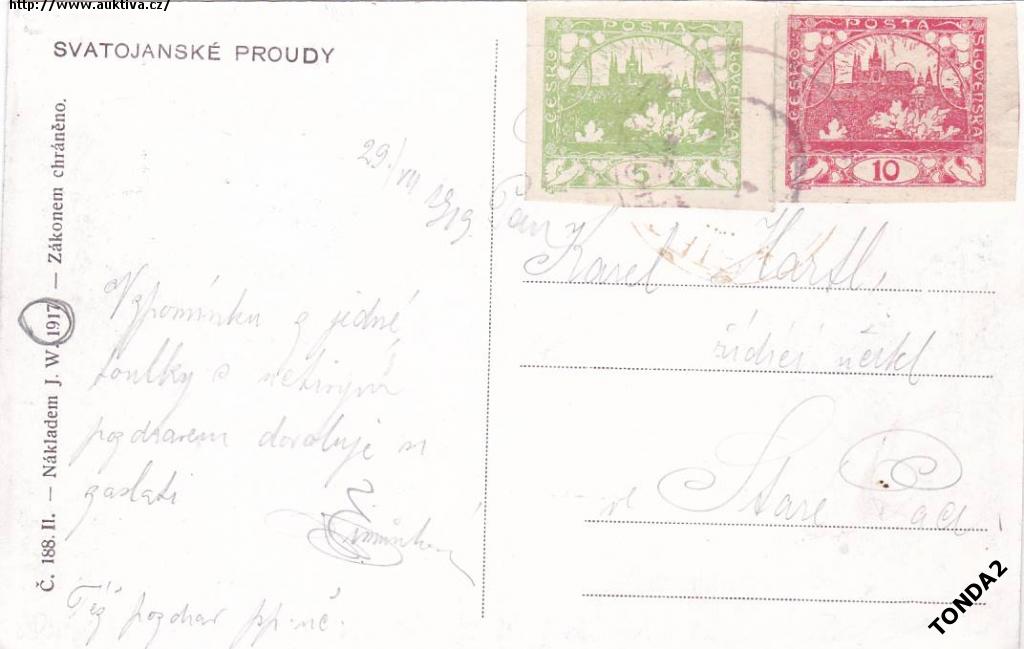 http://www.auktiva.cz/
SVATOJANSKÉ PROUDY
Č. 188. II. — Nákladem J. W. 1917 — Zákonem chráněno.
POŠTA
ČESKO
SLOVENSKÁ
5
POŠTA
ČESKO
SLOVENSKÁ
10
29./VII 1919.
Vzpomínku z jedné
toulky s
pozdravem dovoluje si
zaslati
Též pozdrav
Pan
Karel Hártl,
řídící učitel
ve Staré
TONDA2